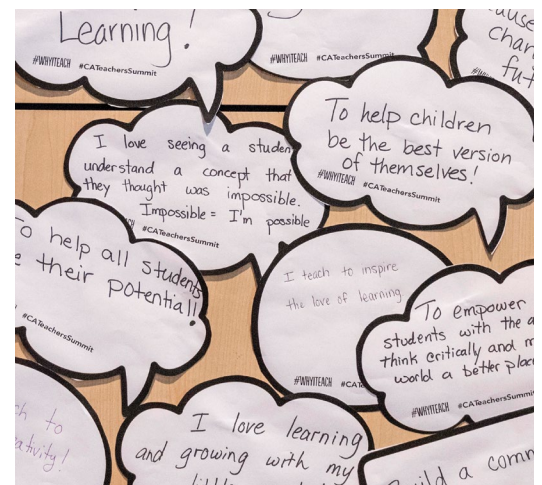 Learning!
#WHYITEACH #CATeachersSummit
#WHYITEACH #CATeachersSummit
chan
fut
#WHYITEACH
To help children
be the best version
of themselves!
#WHYITEACH #CATeachersSummit
I love seeing a studen
understand a concept that
they thought was impossible.
Impossible = I'm possible
#CATeachersSummit
To help all students
their potential!
#CATeachersSummit
I teach to inspire
the love of learning
#WHYITEACH #CAT
To empower
students with the a
think critically and m
world a better place
#WHYITEACH #CATeachersSummit
ch to
eativity!
I love learning
and growing with my
ild a comm